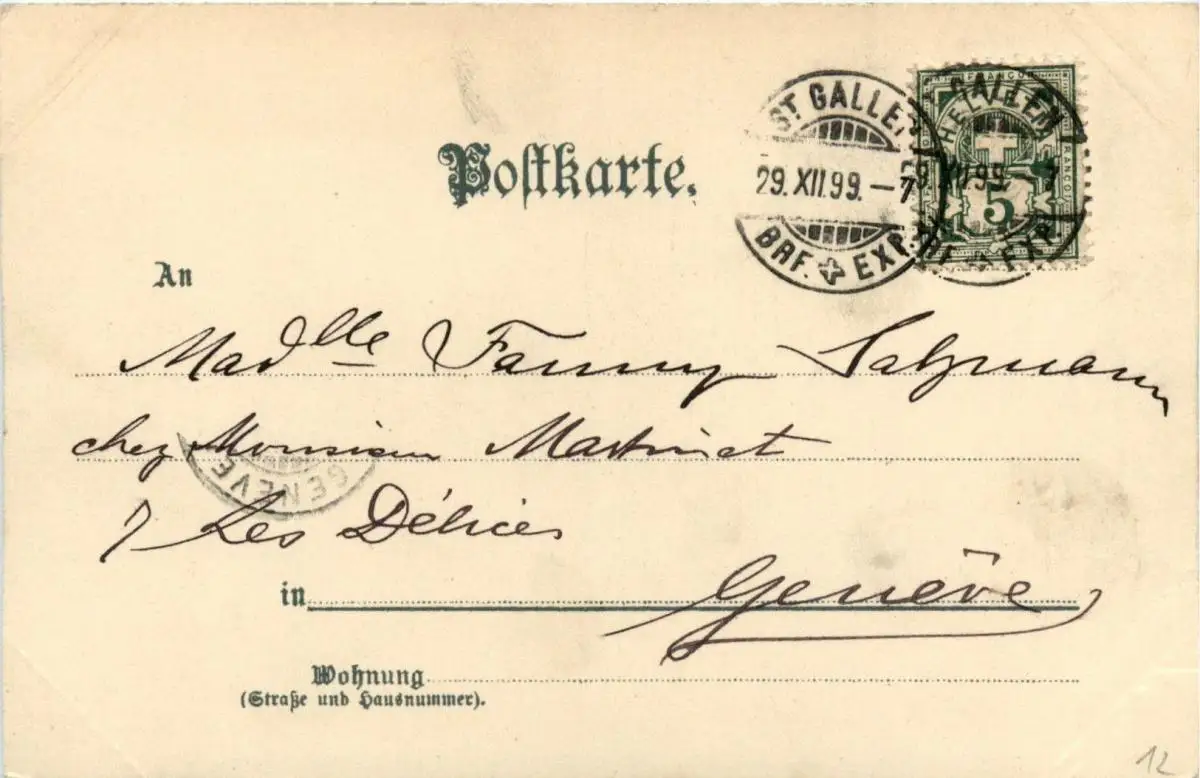 Postkarte.
ST GALLEN
29.XII.99.–7
BRF. EXP.
FRANCO
HELVETIA
FRANCO
5
ST GALLEN
29.XII.99.–7
BRF. EXP.
An
Mad<sup>lle</sup> Fanny Salzmann
chez Monsieur Martinet
GENÈVE
7 Les Délices
in Genève
Wohnung
(Straße und Hausnummer).
12